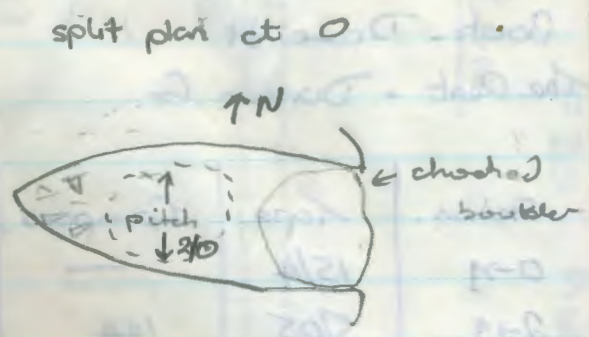 split plan at 0
↑N
← choked
boulder
pitch
2/0